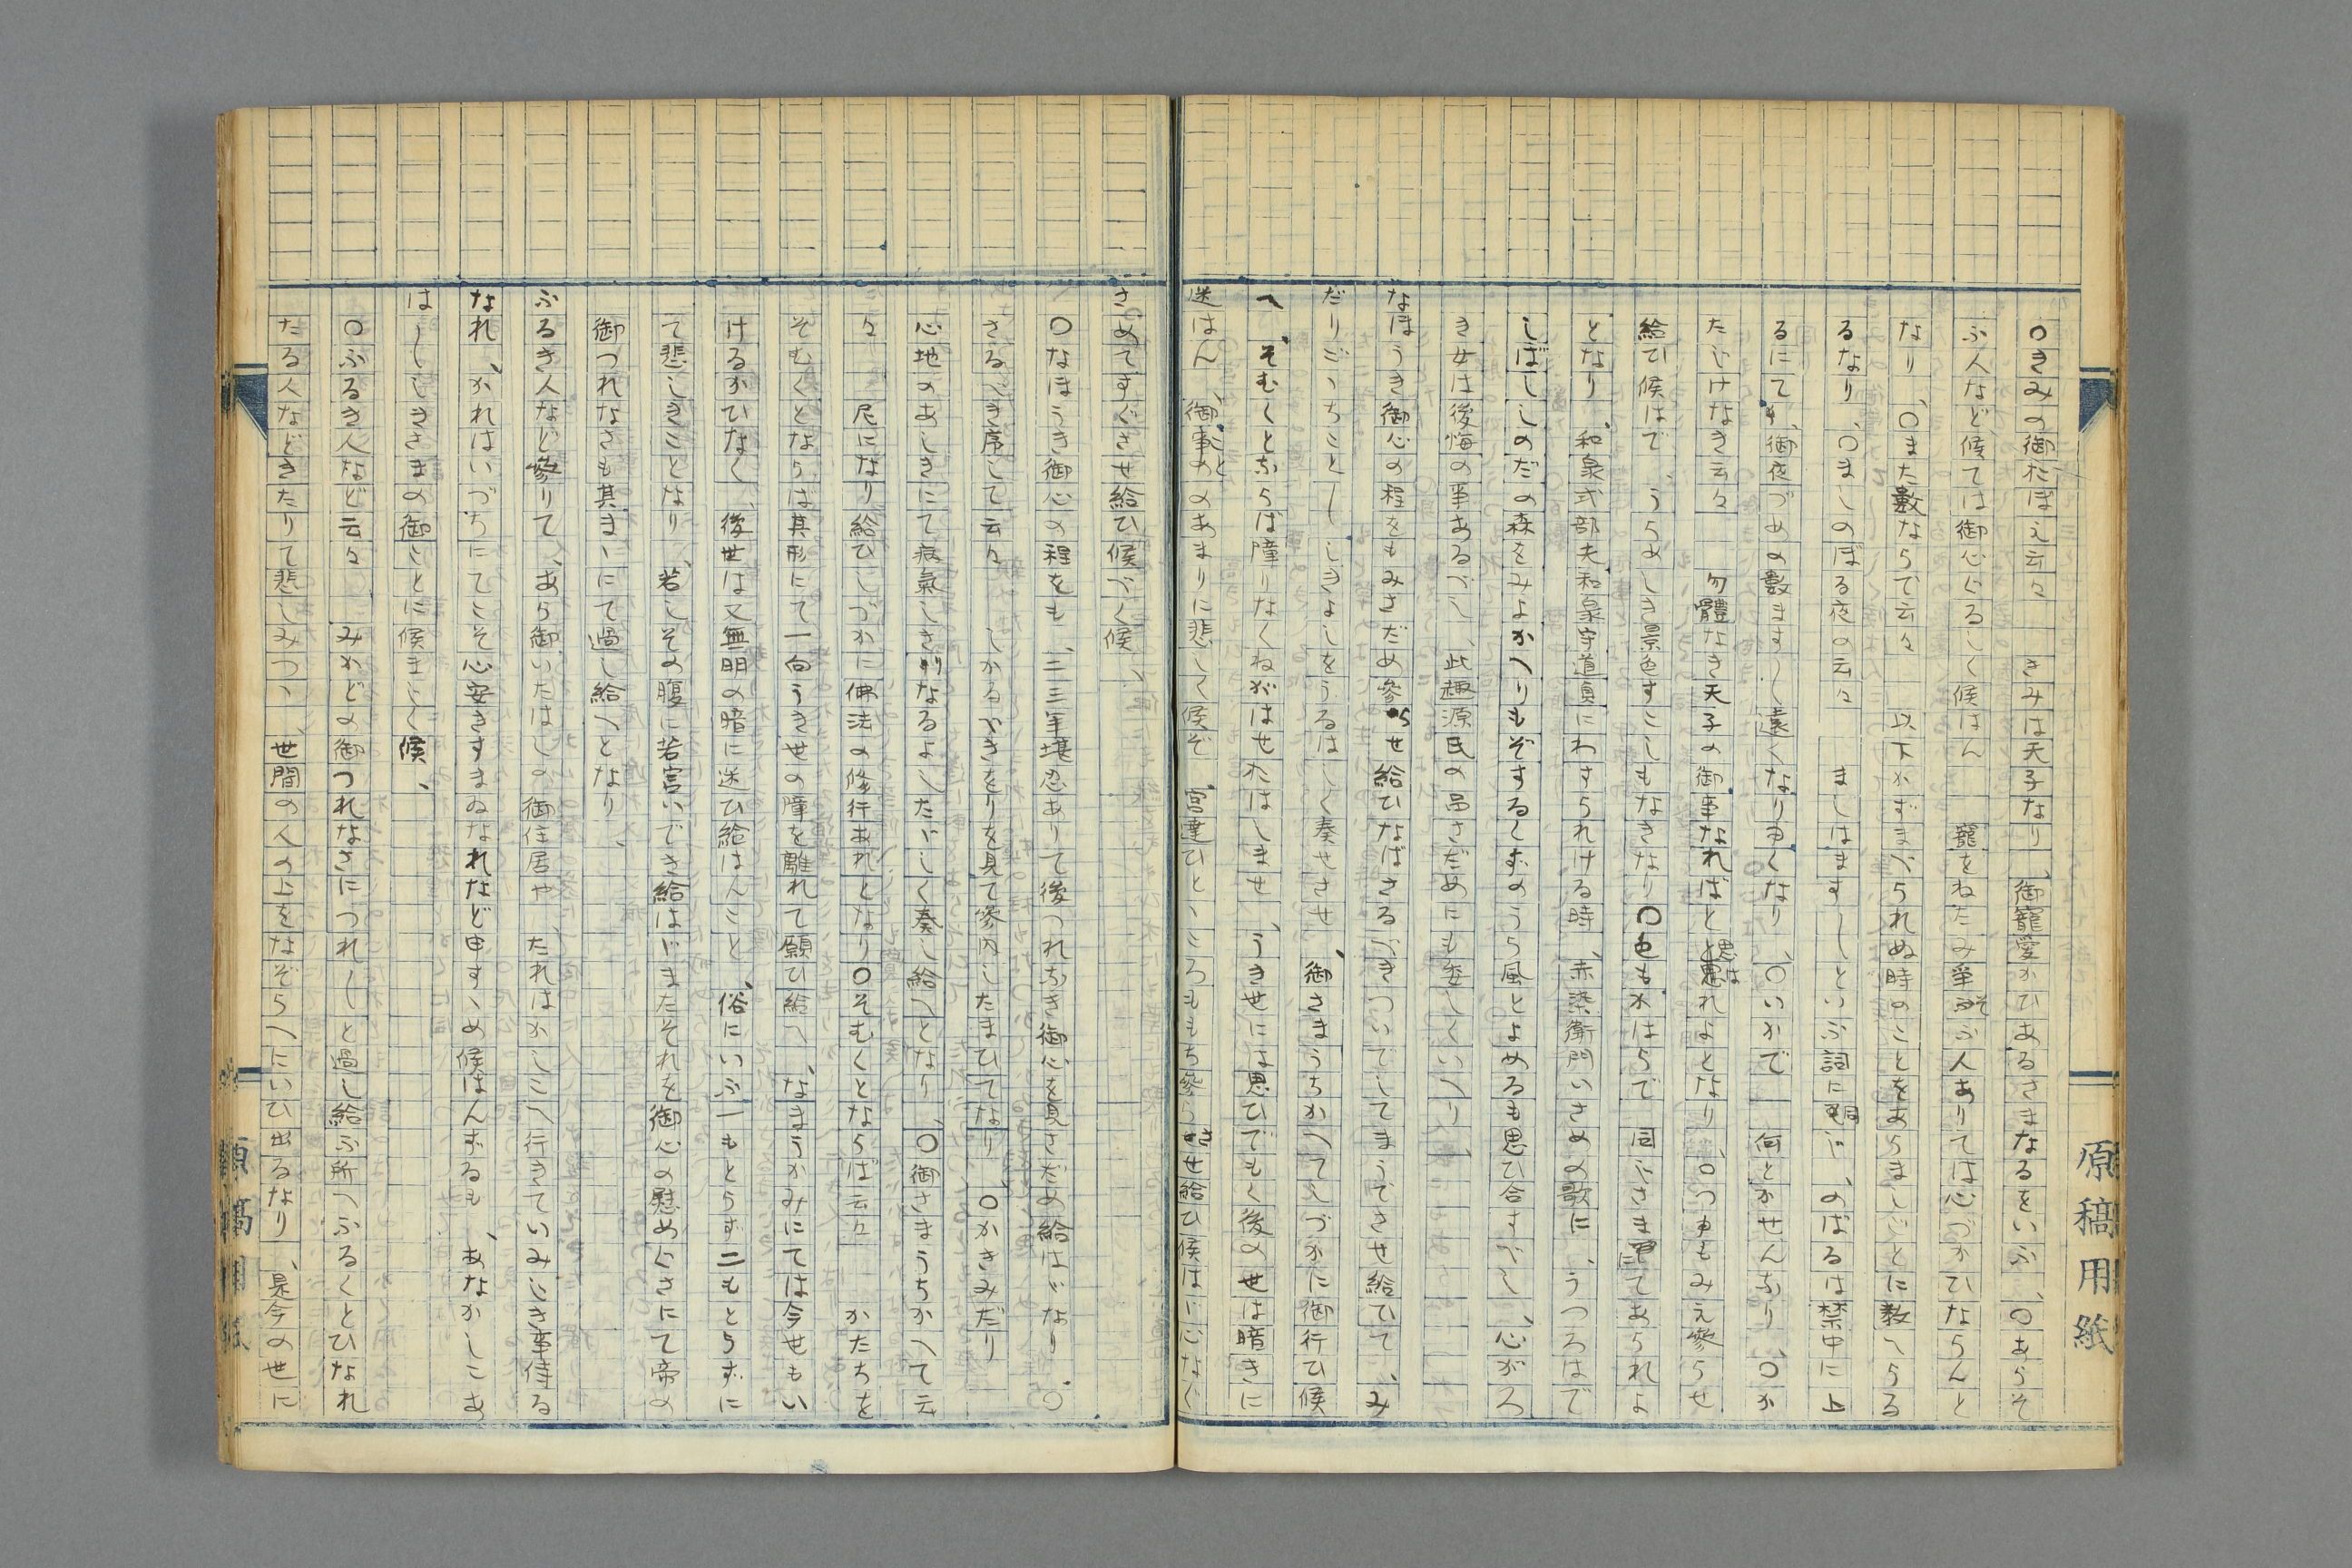 〇きみの御おぼえ云々　きみは天子なり、御寵愛かひあるさまなるをいふ、〇あらそ
ふ人など候ては御心ぐるしく候はん　寵をねたみ争そふ人ありては心づかひならんと
なり、〇また数ならで云々　以下かずまへられぬ時のことをあらましごとに教へらる
るなり、〇ましのぼる夜の云々　ましはますししといふ詞に同じ、のぼるは禁中に上
るにて、御夜づめの数ますし遠くなりゆくなり、〇いかで　何とかせんなり、〇か
たじけなき云々　勿體なき天子の御事なればと思はれよとなり、〇つゆもみえ参らせ
給ひ候はで、うらめしき景色すこしもなきなり〇色もかはらで　同じさまにてあられよ
となり、和泉式部夫和泉守道貞にわすられける時、赤染衛門いさめの歌に、うつろはで
しばししのだの森をみよかへりもぞするくずのうら風とよめるも思ひ合すべし、心がろ
き女は後悔の事あるべし、此趣源氏の品さだめにも委しくいへり、
なほうき御心の程をもみさだめ参らせ給ひなばさるべきついでしてまうでさせ給ひて、み
だりごゝちことしじきよしをうるはしく奏せさせ、御さまうちかへてしづかに御行ひ候
へ、そむくとならば障りなくねがはせおはしませ、うき世には思ひでもく後の世は暗きに
迷はん、御ことのあまりに悲しく候ぞ、宮達ひとゝころももち参らさせ給ひ候はじ心なぐ
さめてすぐさせ給ひ候べく候、
〇なほうき御心の程をも、二三年堪忍ありて後つれなき御心を見さだめ給はじなり、〇
さるべき序して云々　しかるべきをりを見て参内したまひてなり、〇かきみだり
心地のあしきにて病氣しきりなるよしたゞしく奏し給へとなり、〇御さまうちかへて云
々　尼になり給ひしづかに佛法の修行あれとなり〇そむくとならば云々　かたちを
そむくとならば其形にて一向うき世の障を離れて願ひ給へ、なまうかみにては今せもい
けるかひなく、後世は又無明の暗に迷ひ給はんこと、俗にいふ一もとらず二もとらずに
て悲しきことなり、若しその腹に若宮いでき給はゞまたそれを御心の慰めぐさにて帝の
御つれなさも其まゝにて過し給へとなり、
ふるき人など参りて、あら御いたはしの御住居や、たれはかしこへ行きていみじき事侍る
なれ、かれはいづちにてこそ心安きすまゐなれなど申すゝめ候はんずるも、あなかしこあ
はししじきさまの御ことに候まじく候、
〇ふるき人など云々　みかどの御つれなさにつれしと過し給ふ所へふるくとひなれ
たる人などきたりて悲しみつゝ、世間の人の上をなぞらへにいひ出るなり、是今の世に
原稿用紙